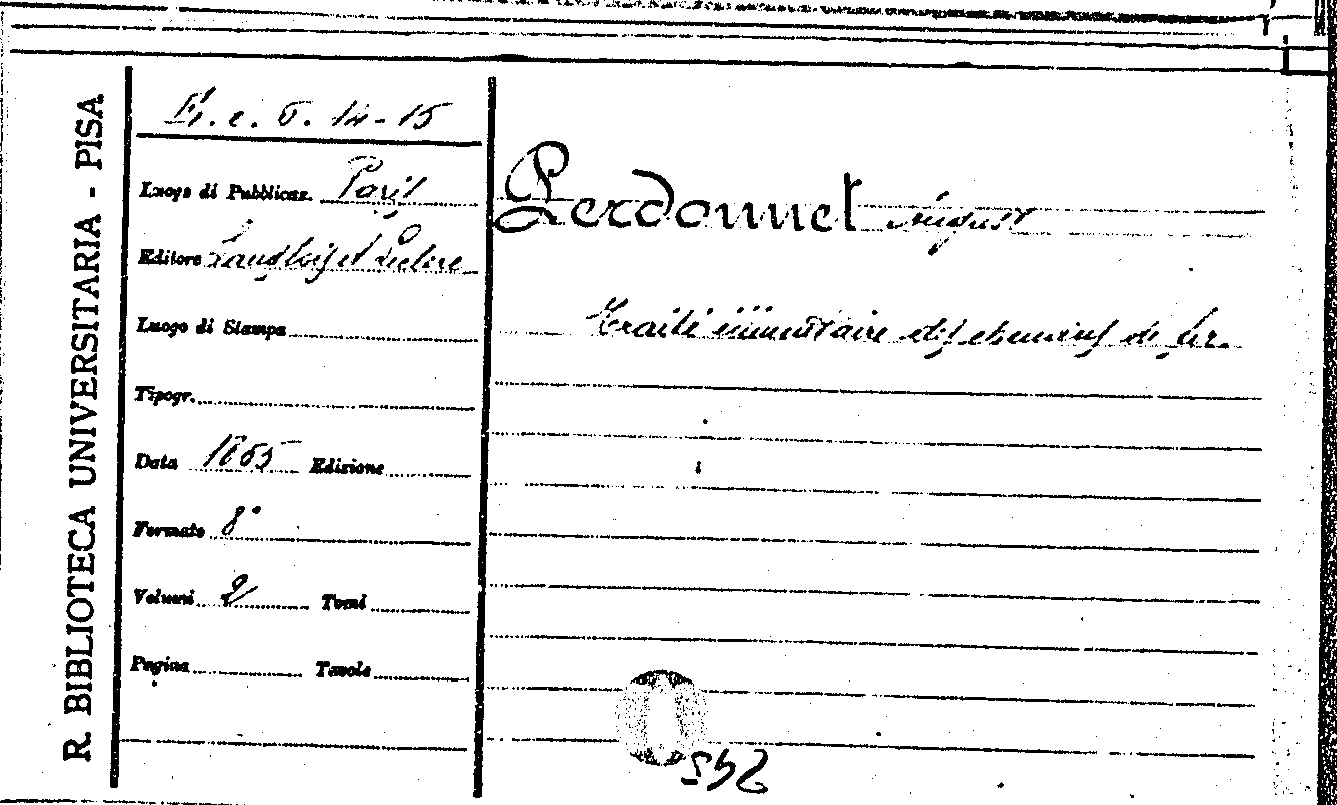 R. BIBLIOTECA UNIVERSITARIA - PISA
H. c. 6. 14-15
Luogo di Pubblicaz. Paris
Editore Langlois et Leclere
Luogo di Stampa
Tipogr.
Data 1865 Edizione
Formato 8°
Volumi 2 Tomi
Pagine Tavole
Perdonnet August
Traité élémentaire des chemins de fer.
245